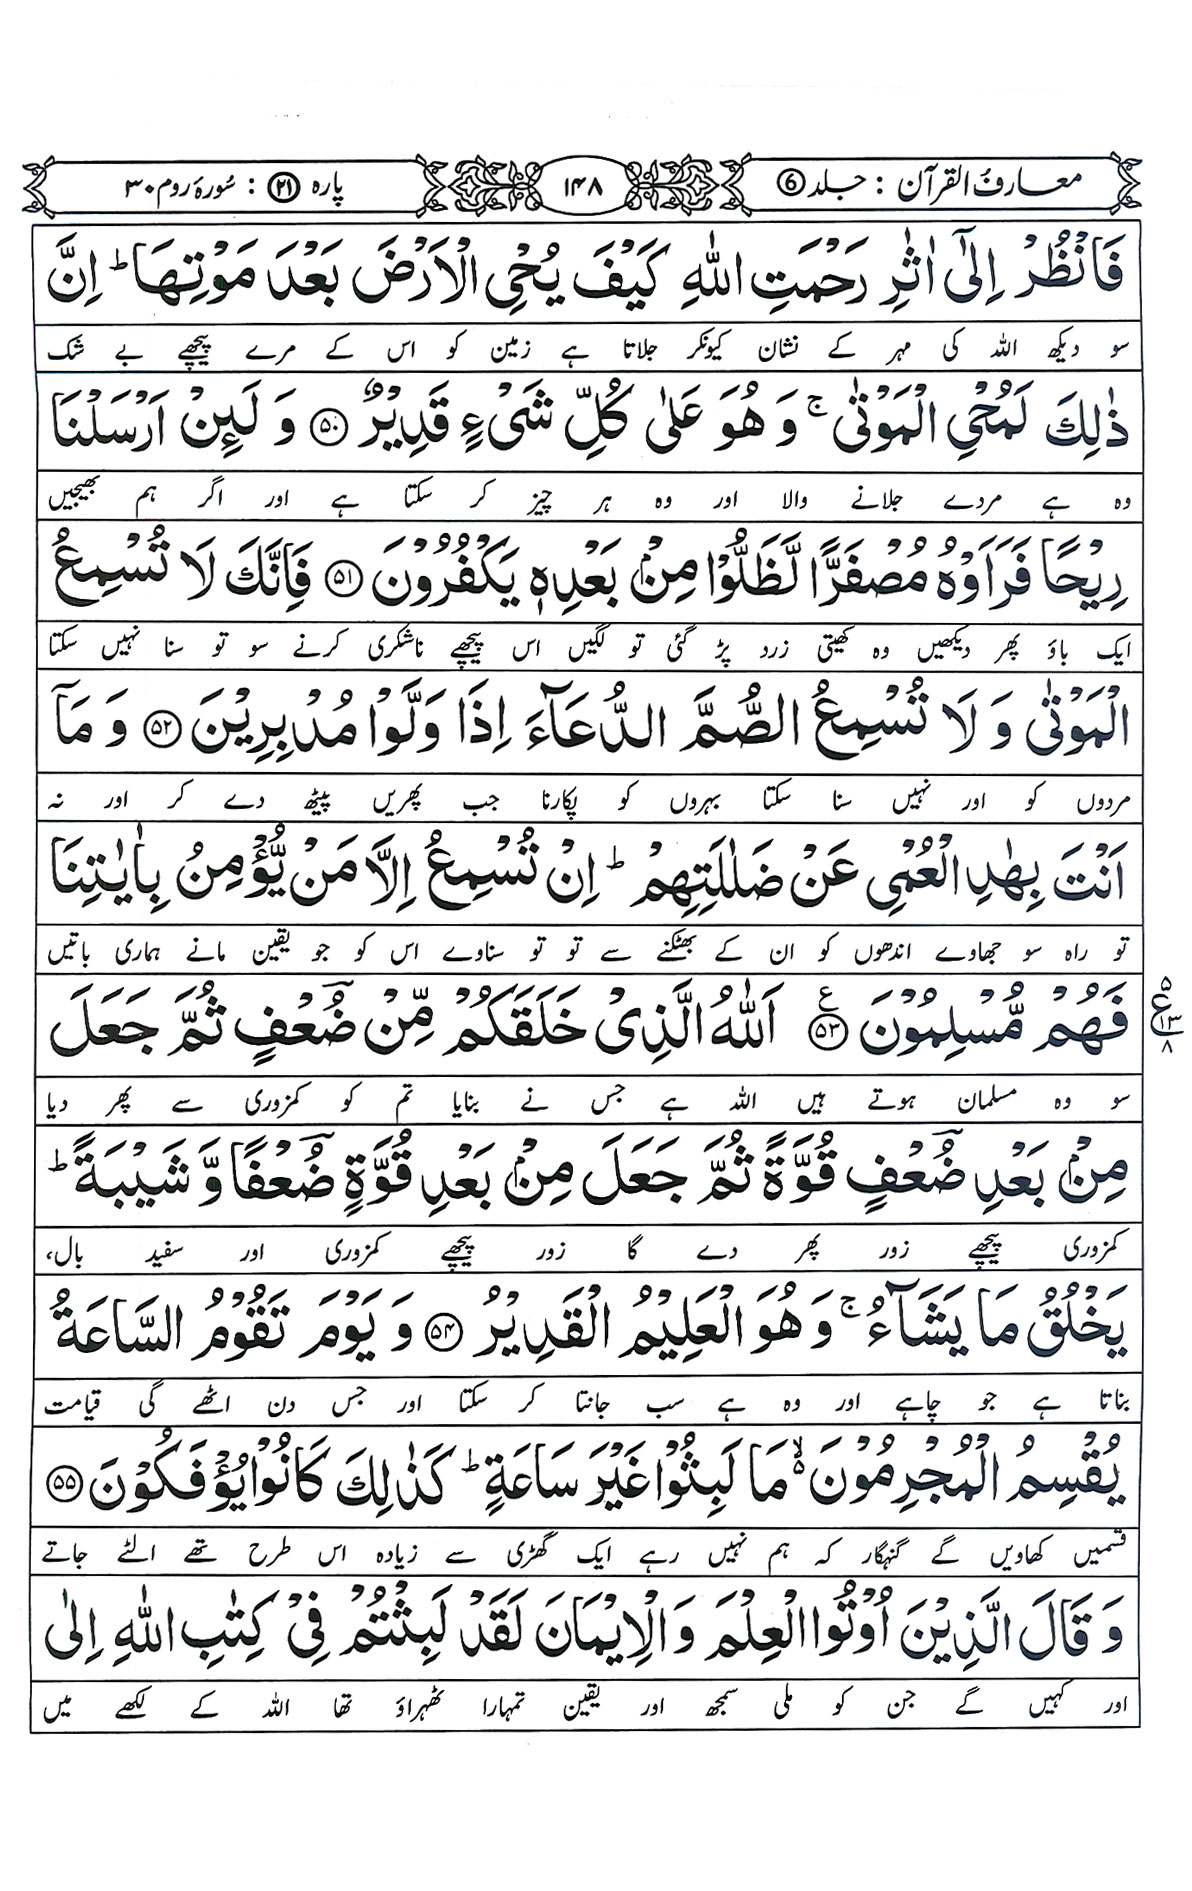 معارفُ القرآن : جلد ⑥
۱۴۸
پارہ ㉑ : سُورۂ روم ۳۰
فَانْظُرْ اِلٰٓى اٰثٰرِ رَحْمَتِ اللّٰهِ كَيْفَ يُحْيِ الْاَرْضَ بَعْدَ مَوْتِهَا ؕ اِنَّ
سو دیکھ اللہ کی مہر کے نشان کیونکر جلاتا ہے زمین کو اس کے مرے پیچھے بے شک
ذٰلِكَ لَمُحْيِ الْمَوْتٰى ۚ وَ هُوَ عَلٰى كُلِّ شَيْءٍ قَدِيْرٌ ۟ ﴿۵۰﴾ وَ لَىِٕنْ اَرْسَلْنَا
وہ ہے مردے جلانے والا اور وہ ہر چیز کر سکتا ہے اور اگر ہم بھیجیں
رِيْحًا فَرَاَوْهُ مُصْفَرًّا لَّظَلُّوْا مِنْۢ بَعْدِهٖ يَكْفُرُوْنَ ﴿۵۱﴾ فَاِنَّكَ لَا تُسْمِعُ
ایک باؤ پھر دیکھیں وہ کھیتی زرد پڑ گئی تو لگیں اس پیچھے ناشکری کرنے سو تو سنا نہیں سکتا
الْمَوْتٰى وَ لَا تُسْمِعُ الصُّمَّ الدُّعَآءَ اِذَا وَلَّوْا مُدْبِرِيْنَ ﴿۵۲﴾ وَ مَآ
مردوں کو اور نہیں سنا سکتا بہروں کو پکارنا جب پھریں پیٹھ دے کر اور نہ
اَنْتَ بِهٰدِ الْعُمْيِ عَنْ ضَلٰلَتِهِمْ ؕ اِنْ تُسْمِعُ اِلَّا مَنْ يُّؤْمِنُ بِاٰيٰتِنَا
تو راہ سو جھاوے اندھوں کو ان کے بھٹکنے سے تو تو سناوے اس کو جو یقین مانے ہماری باتیں
فَهُمْ مُّسْلِمُوْنَ ﴿۵۳﴾ ع اَللّٰهُ الَّذِيْ خَلَقَكُمْ مِّنْ ضُعْفٍ ثُمَّ جَعَلَ
۵ ع ۱۳ ۸
سو وہ مسلمان ہوتے ہیں اللہ ہے جس نے بنایا تم کو کمزوری سے پھر دیا
مِنْۢ بَعْدِ ضُعْفٍ قُوَّةً ثُمَّ جَعَلَ مِنْۢ بَعْدِ قُوَّةٍ ضُعْفًا وَّ شَيْبَةً ؕ
کمزوری پیچھے زور پھر دے گا زور پیچھے کمزوری اور سفید بال،
يَخْلُقُ مَا يَشَآءُ ۚ وَ هُوَ الْعَلِيْمُ الْقَدِيْرُ ﴿۵۴﴾ وَ يَوْمَ تَقُوْمُ السَّاعَةُ
بناتا ہے جو چاہے اور وہ ہے سب جانتا کر سکتا اور جس دن اٹھے گی قیامت
يُقْسِمُ الْمُجْرِمُوْنَ ۙ۬ مَا لَبِثُوْا غَيْرَ سَاعَةٍ ؕ كَذٰلِكَ كَانُوْا يُؤْفَكُوْنَ ﴿۵۵﴾
قسمیں کھاویں گے گنہگار کہ ہم نہیں رہے ایک گھڑی سے زیادہ اس طرح تھے الٹے جاتے
وَ قَالَ الَّذِيْنَ اُوْتُوا الْعِلْمَ وَ الْاِيْمَانَ لَقَدْ لَبِثْتُمْ فِيْ كِتٰبِ اللّٰهِ اِلٰى
اور کہیں گے جن کو ملی سمجھ اور یقین تمہارا ٹھہراؤ تھا اللہ کے لکھے میں